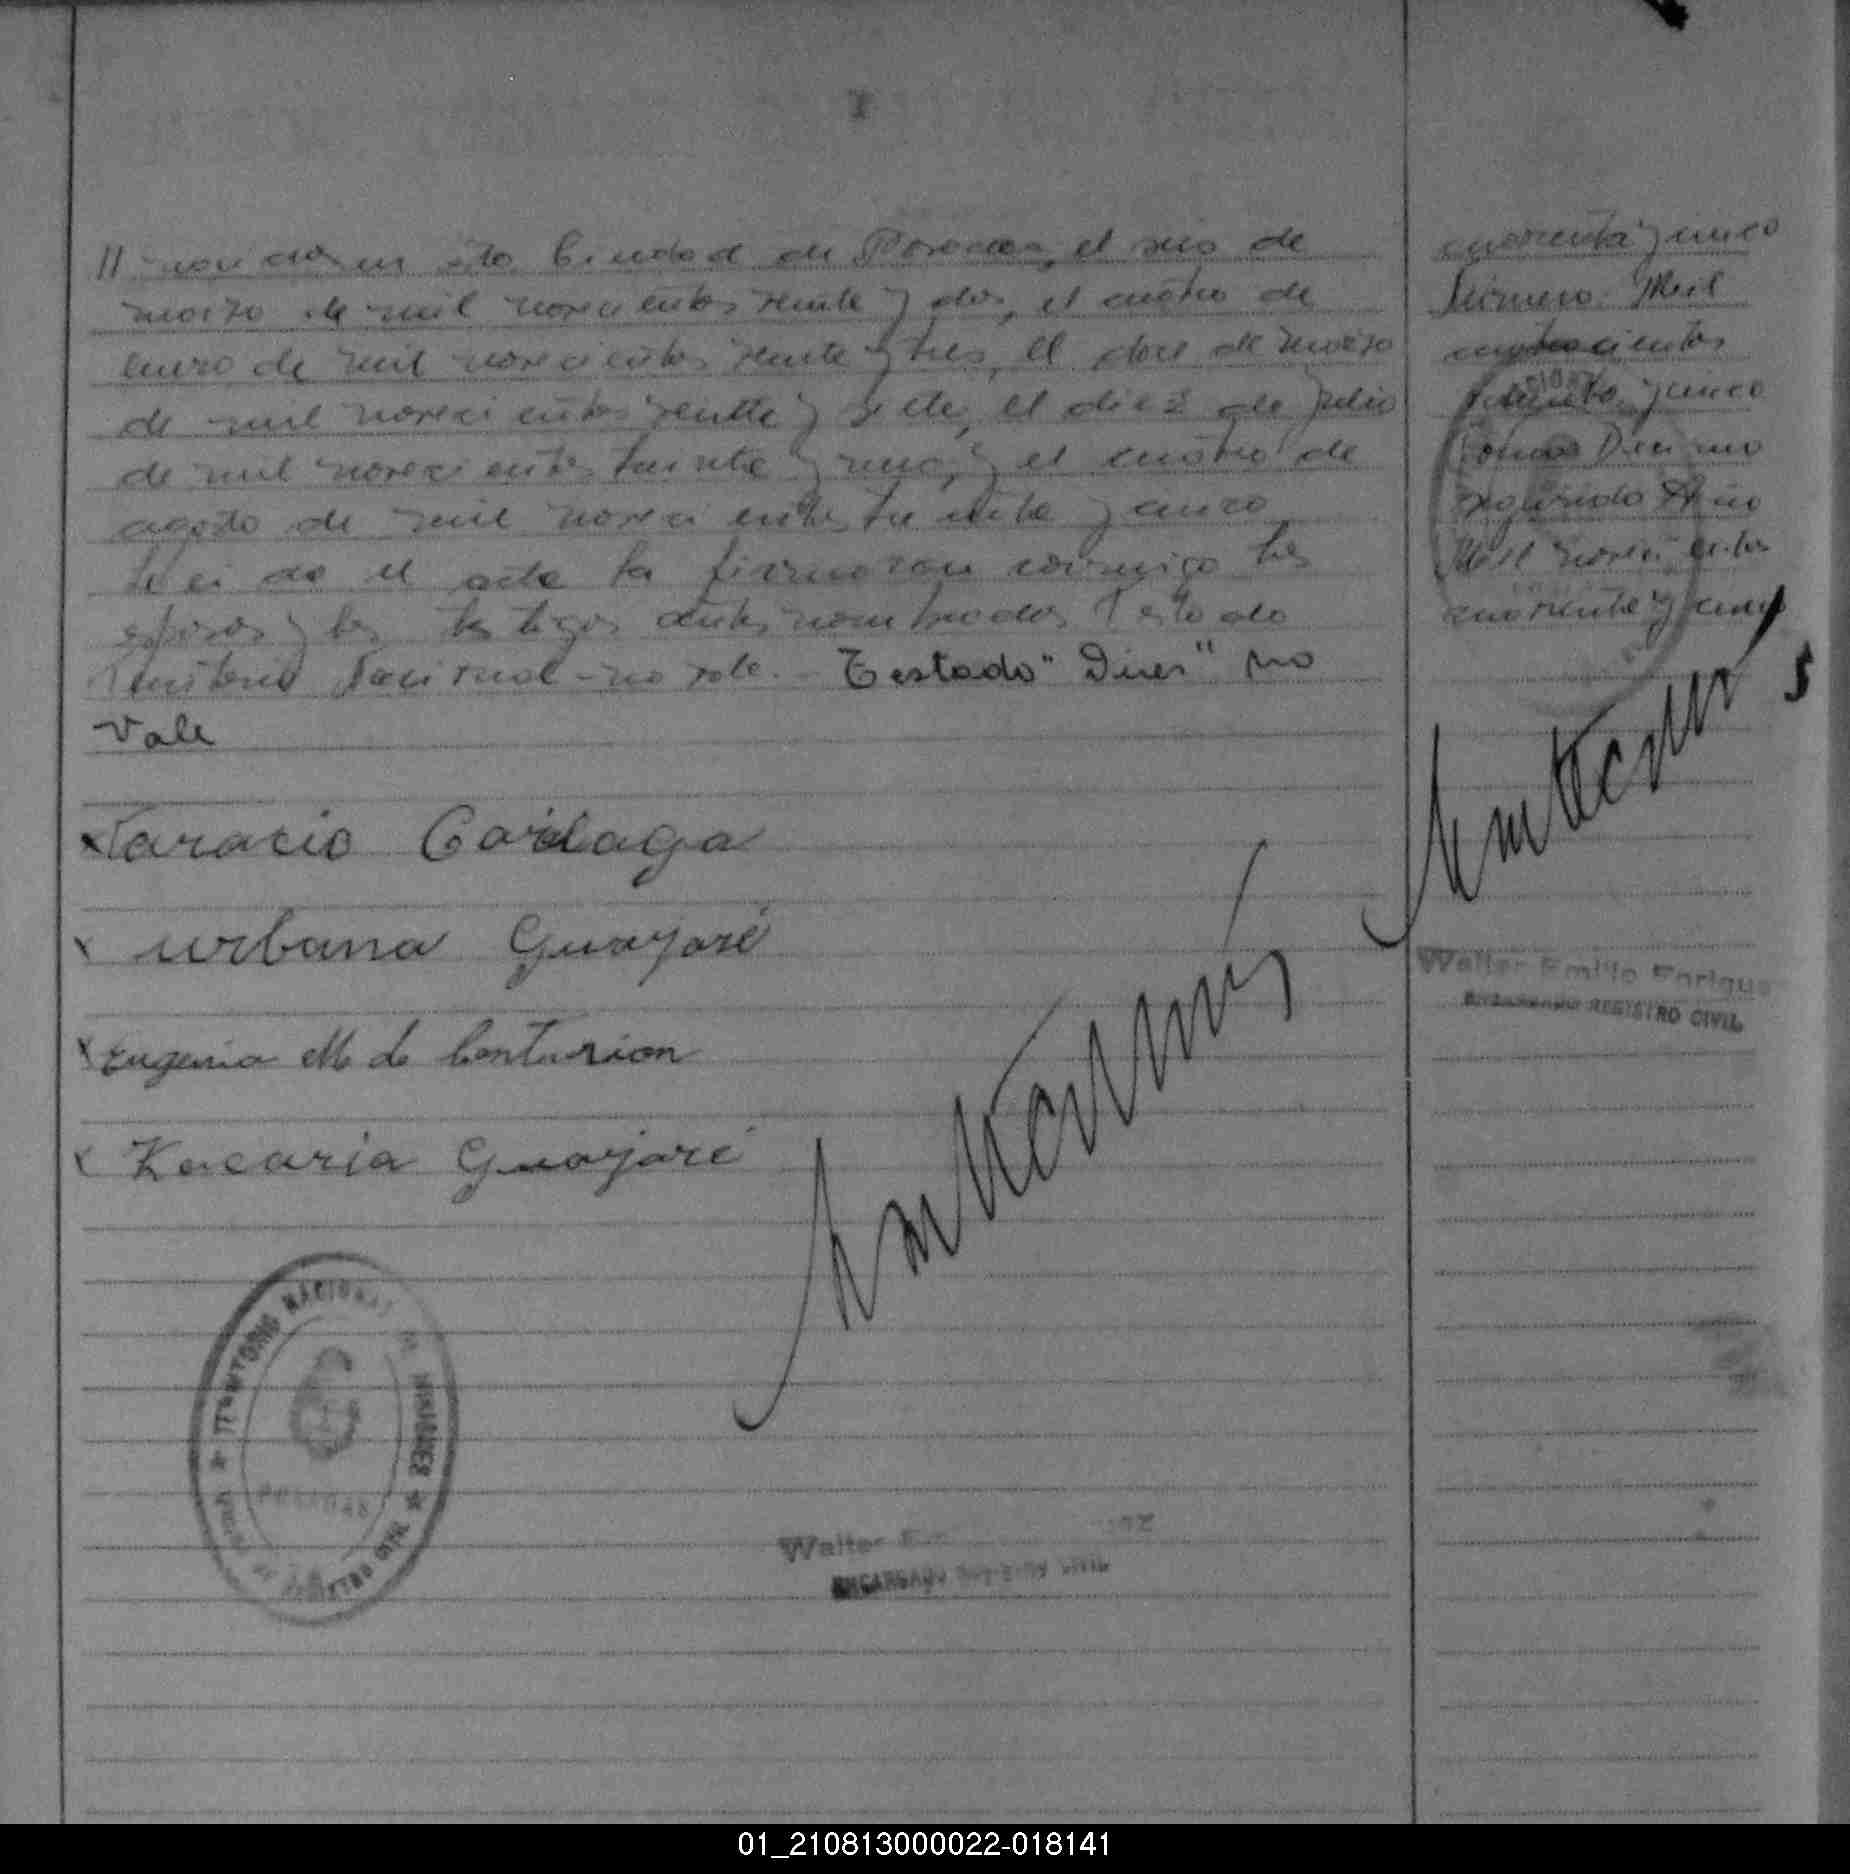 // en esta Ciudad de Posadas, el seis de
marzo de mil novecientos veinte y dos, el cuatro de
enero de mil novecientos veinte y tres, el doce de marzo
de mil novecientos veinte y siete, el diez de julio
de mil novecientos treinta y uno, y el cuatro de
agosto de mil novecientos treinta y cinco
Leida el acta la firmaron conmigo los
esposos y los testigos antes nombrados Testado
Territorio Nacional - no vale. - Testado "Dices" no
Vale
Taracio Cardaga
urbana Guayaré
Eugenia M de Centurion
Zacaria Guayaré
TERRITORIO NACIONAL DE MISIONES
POSADAS
REGISTRO CIVIL
Walter E
ENCARGADO REGISTRO CIVIL
cuarenta y cinco
Número Mil
cuatrocientos
y cinco
Tomo Decimo
segundo Año
Mil novecientos
cuarenta y cinco
Walter Emilio Enrique
ENCARGADO REGISTRO CIVIL
01_210813000022-018141